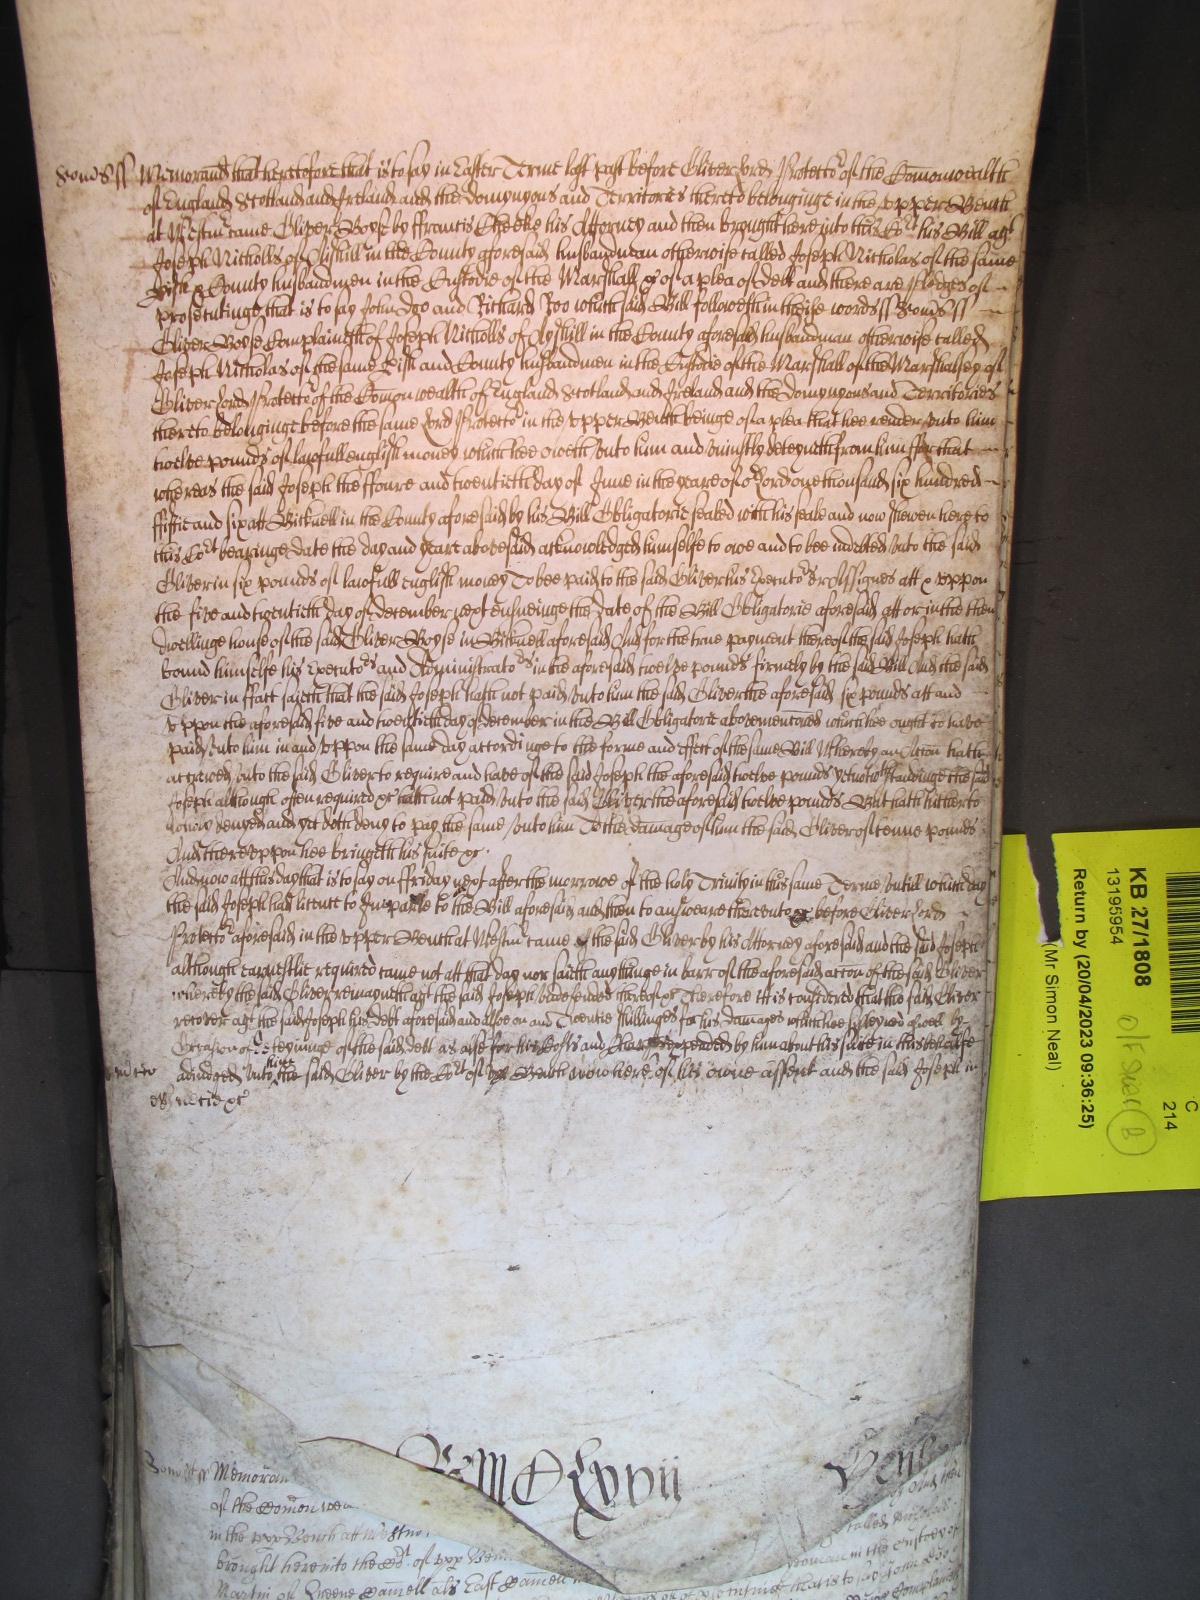 Devons ss Memorand that heretofore that is to say in Easter Terme last past before Oliver Lord Protector of the Comonwealth
of England Scotland and Ireland and the domynyons and Territories thereto belonginge in the upper Bench
at Westmr came Oliver Boyse by ffrancis Cheeke his Attorney and then brought here into this Cort his Bill agt
Joseph Nicholls of in the County aforesaid husbandman otherwise called Joseph Nicholas of the same
County husbandmen in the Custodie of the Marshall &c of a plea of debt and there are pledges of
prosecutinge that is to say John Doo and Richard Roo which said Bill followeth in theise words ss Devons ss
Oliver Boyse Complaineth of Joseph Nicholls of in the County aforesaid husbandman otherwise called
Joseph Nicholas of the same and County husbandmen in the Custodie of the Marshall of the Marshalsey of
Oliver Lord Protector of the Comon wealth of England Scotland and Ireland and the domynyons and Territories
thereto belonginge before the same Lord Protector in the upper Bench beinge of a plea that hee render unto him
twelve pounds of lawfull english money which hee oweth unto him and uniustly deteyneth from him ffor that
whereas the said Joseph the ffoure and twentieth day of June in the yeare of or Lord one thousand six hundred
ffiftie and six att Bicknell in the County aforesaid by his Bill Obligatorie sealed with his seale and now shewen here to
this Cort bearinge date the day and yeare abovesaid acknowledged himselfe to owe and to bee indebted unto the said
Oliver in six pounds of lawfull english money To bee paid to the said Oliver his Executors or Assignes att or uppon
the five and twentieth day of december next ensueinge the date of the Bill Obligatorie aforesaid att or in the then
dwellinge house of the said Oliver Boyse in Bicknell aforesaid And for the true payment thereof the said Joseph hath
bound himselfe his Executors and Administrators in the aforesaid twelve pounds firmely by the said Bill And the said
Oliver in fact saieth that the said Joseph hath not paid unto him the said Oliver the aforesaid six pounds att and
uppon the aforesaid five and twentieth day of december in the Bill Obligatorie abovementioned which hee ought to have
paid unto him in and uppon the same day accordinge to the forme and effect of the same Bill Whereby an Accon hath
accrewed unto the said Oliver to require and have of the said Joseph the aforesaid twelve pounds yet notwthstandinge the said
Joseph although often required &c hath not paid unto the said Oliver the aforesaid twelve pounds But hath hitherto
denyed and yet doth deny to pay the same unto him To the damage of him the said Oliver of tenne pounds
And thereuppon hee bringeth his suite &c
And now att this day that is to say on ffriday next after the morrowe of the holy Trinity in this same Terme untill which day
the said Joseph had licence to Imparle to the Bill aforesaid and then to answeare thereunto &c before Oliver Lord
Protector aforesaid in the upper Bench at Westmr came the said Oliver by his Attorney aforesaid and the said Joseph
although earnestlie required came not att that day nor saieth anythinge in barr of the aforesaid accon of the said Oliver
whereby the said Oliver remayneth agt the said Joseph undefended thereof &c Therefore itt is considered that the said Oliver
recover agt the said Joseph his debt aforesaid and alsoe and Twentie shillinges for his damages which hee susteyned aswell by
occasion of the deteyninge of the said debt as alsoe for his Costs and expended by him about his suite in this behalfe
adiudged unto the said Oliver by the Cort of Bench now here of his owne assent and the said Joseph in
mercie &c
Memoran
of the Comon wea
in the upp Bench att Westm
brought here into the Cort of upp Ben
Martin of Queene Camell als East Camell
yeoman in the custody of
that is to say John Doo
Complain
KB 27/1808
13195954
Return by (20/04/2023 09:36:25)
(Mr Simon Neal)
C
214
B